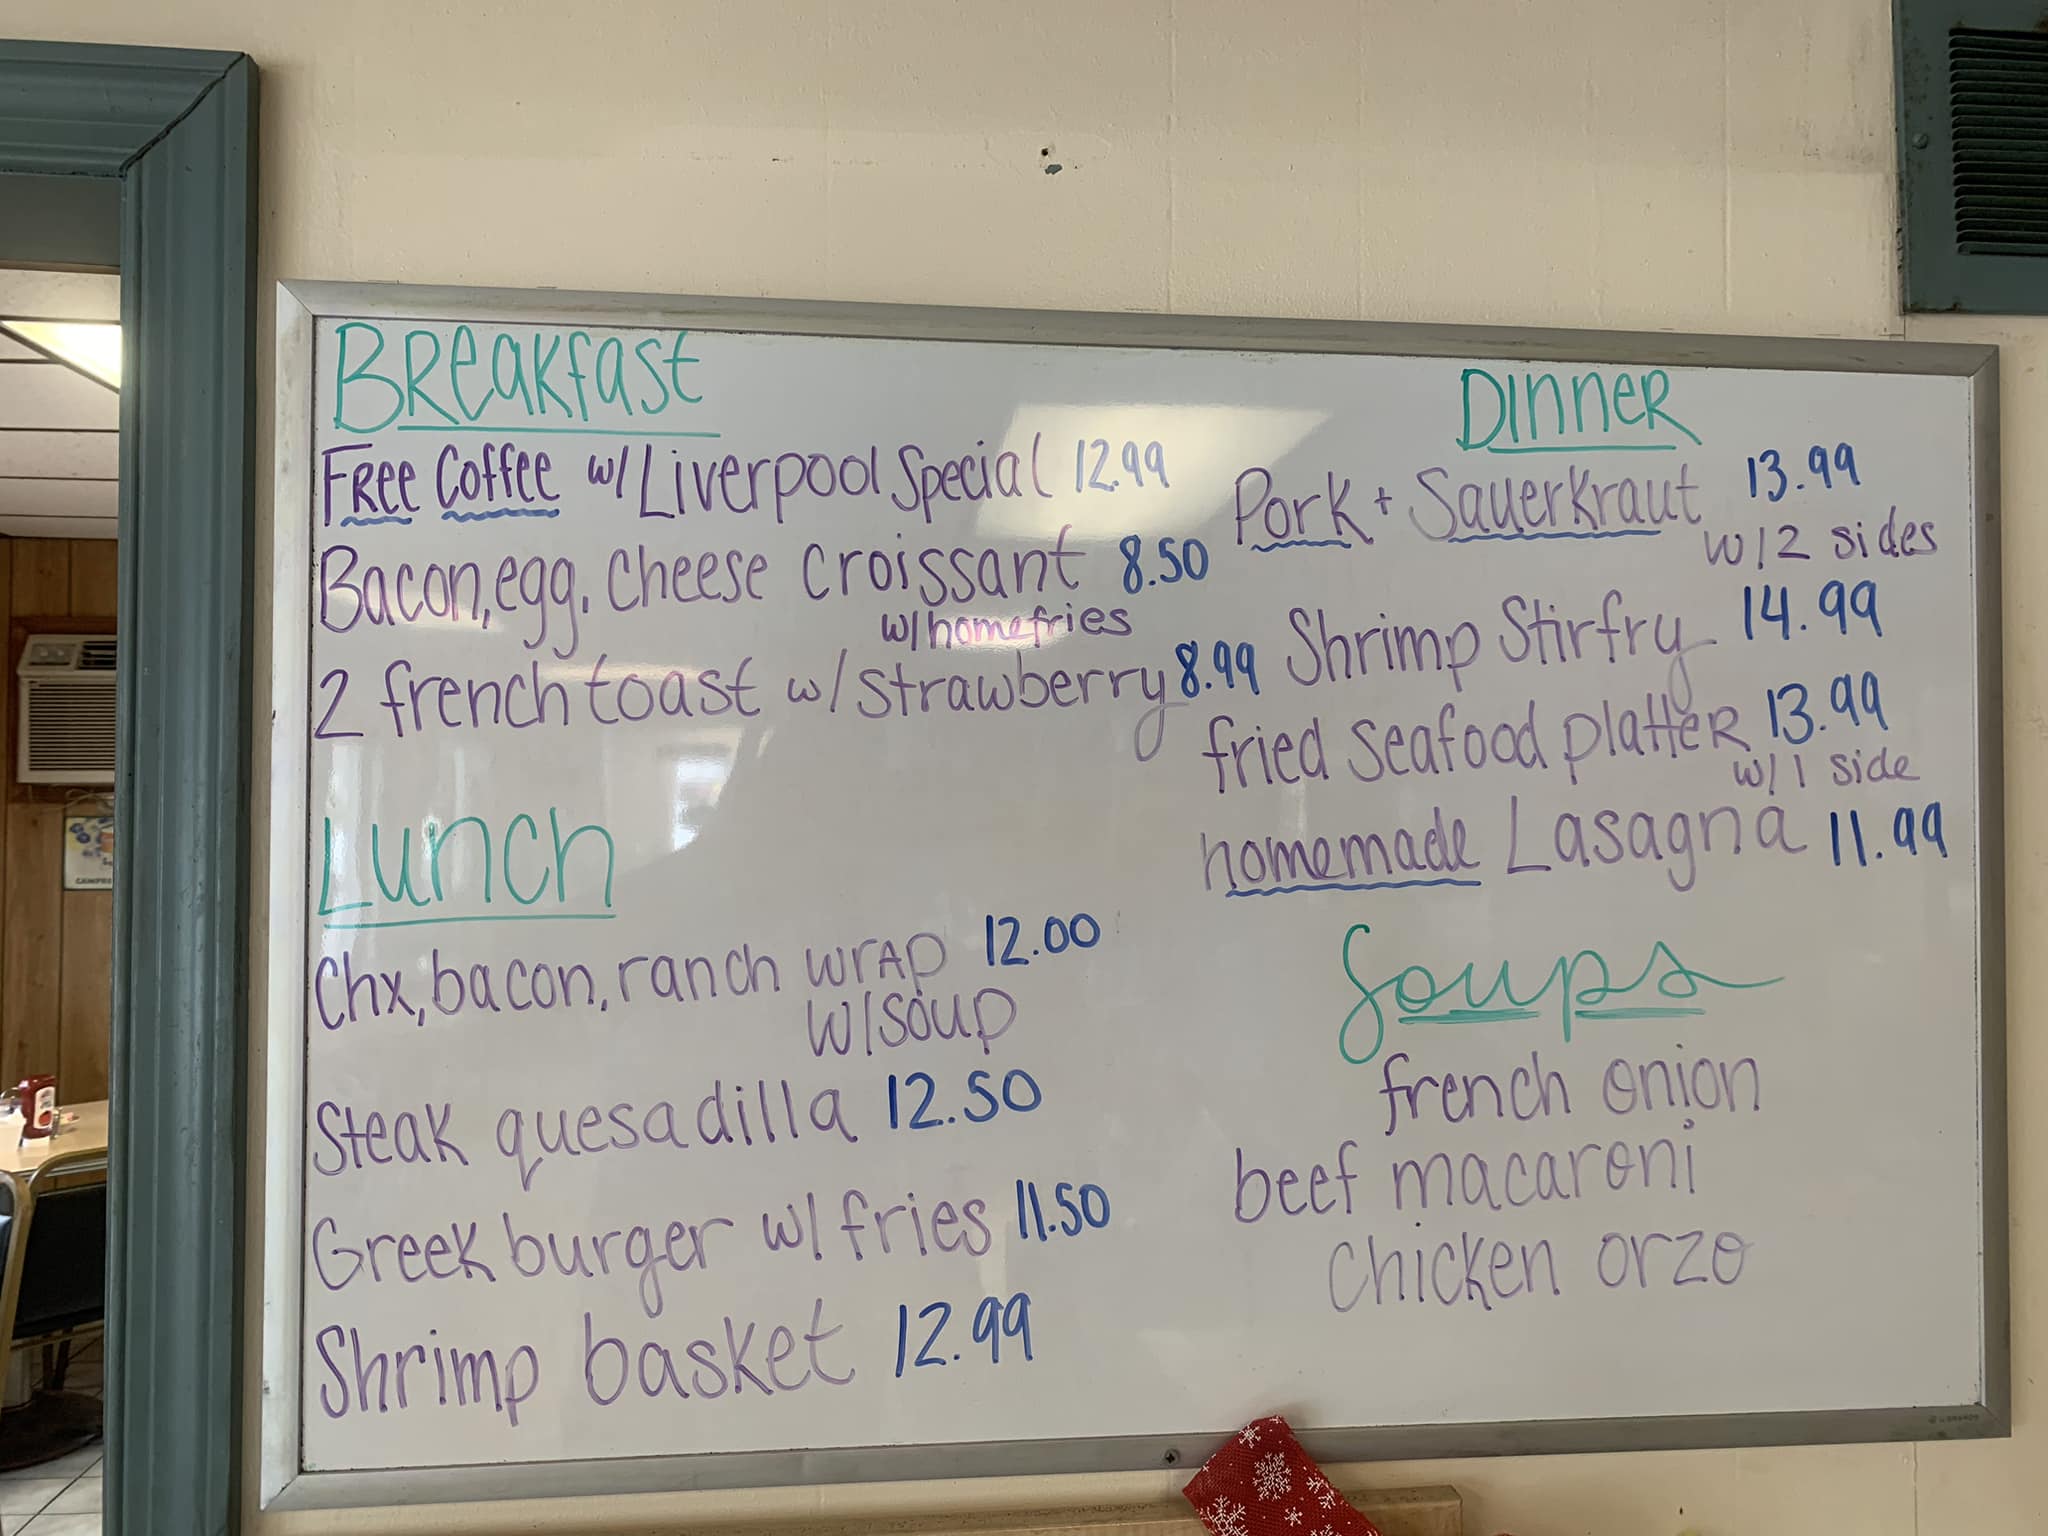 Breakfast
Free Coffee w/ Liverpool Special 12.99
Bacon, egg, cheese croissant 8.50
w/ homefries
2 french toast w/ strawberry 8.99
Lunch
Chx, bacon, ranch wrap 12.00
w/ soup
Steak quesadilla 12.50
Greek burger w/ fries 11.50
Shrimp basket 12.99
Dinner
Pork + Sauerkraut 13.99
w/ 2 sides
Shrimp Stirfry 14.99
fried seafood platter 13.99
w/ 1 side
homemade Lasagna 11.99
Soups
french onion
beef macaroni
chicken orzo